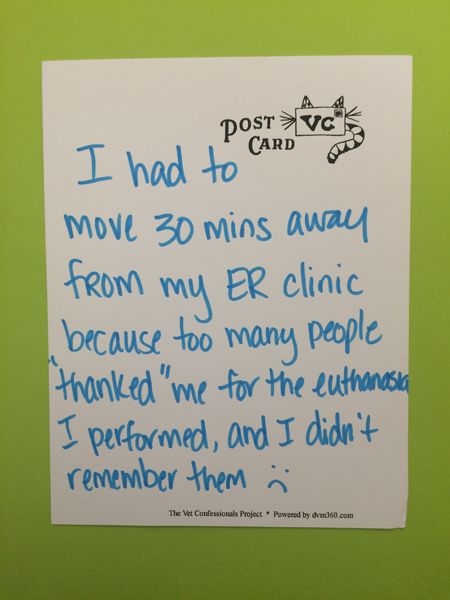 POST CARD VC
I had to
move 30 mins away
from my ER clinic
because too many people
"thanked" me for the euthanasia
I performed, and I didn't
remember them ☹
The Vet Confessionals Project * Powered by dvm360.com